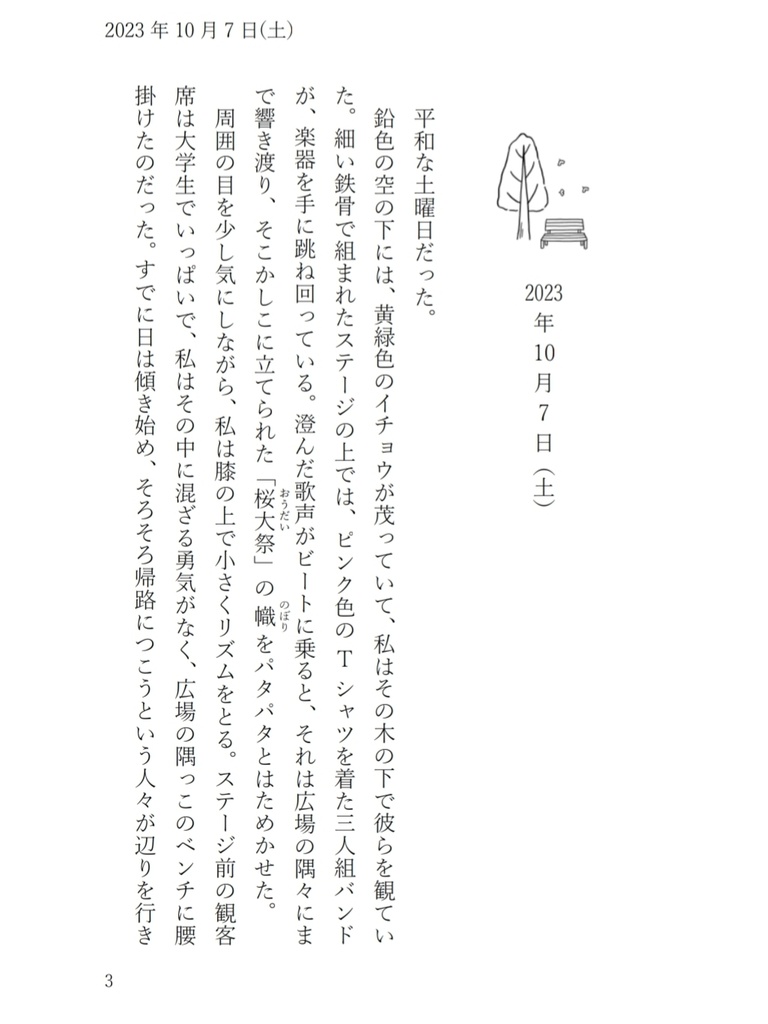 2023年10月7日(土)
2023年10月7日(土)
平和な土曜日だった。
鉛色の空の下には、黄緑色のイチョウが茂っていて、私はその木の下で彼らを観てい
た。細い鉄骨で組まれたステージの上では、ピンク色のTシャツを着た三人組バンド
が、楽器を手に跳ね回っている。澄んだ歌声がビートに乗ると、それは広場の隅々にま
で響き渡り、そこかしこに立てられた「桜大祭」の幟をパタパタとはためかせた。
おうだい
のぼり
周囲の目を少し気にしながら、私は膝の上で小さくリズムをとる。ステージ前の観客
席は大学生でいっぱいで、私はその中に混ざる勇気がなく、広場の隅っこのベンチに腰
掛けたのだった。すでに日は傾き始め、そろそろ帰路につこうという人々が辺りを行き
3